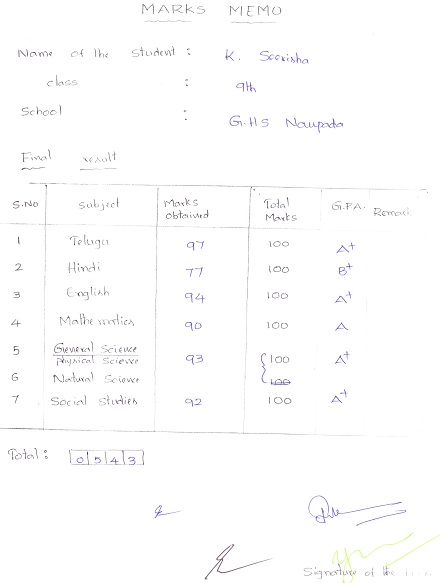 MARKS MEMO
Name of the Student : K. Seerisha
class : 9th
School : G.H.S Naupada
Final result
S.NO Subject Marks Obtained Total Marks G.P.A. Remark
1 Telugu 97 100 A+
2 Hindi 77 100 B+
3 English 94 100 A+
4 Mathematics 90 100 A
5 General Science
Physical Science 93 100 A+
6 Natural Science 100
7 Social Studies 92 100 A+
Total : 0543
Signature of the